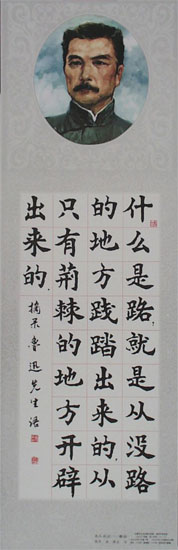 什么是路，就是从没路
的地方践踏出来的，从
只有荆棘的地方开辟
出来的。
摘录鲁迅先生语